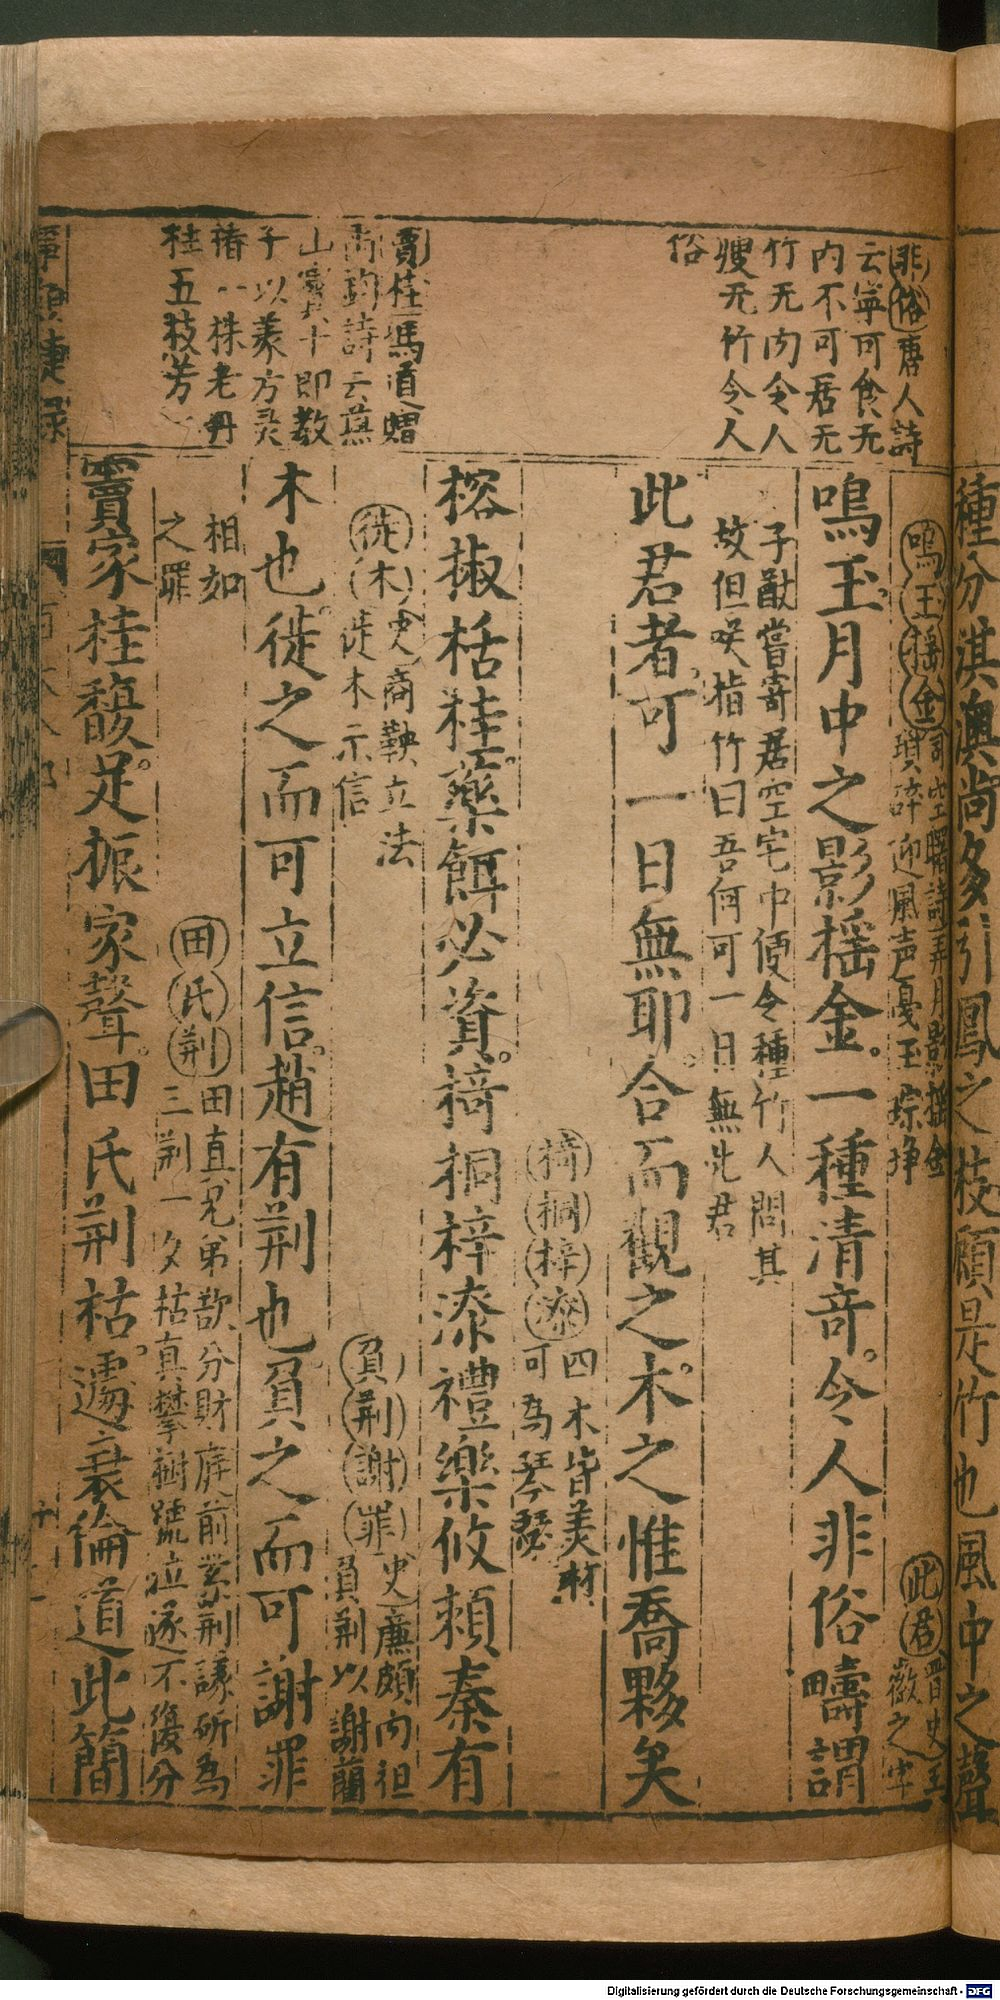 種分淇澳尚多引鳳之枝頋是竹也風中之聲
非俗唐人詩
云寧可食无
內不可居无
竹无肉令人
瘦无竹令人
俗
賈桂馮道贈
禹鈞詩云燕
山竇十郎教
子以義方灵
椿一株老丹
桂五枝芳
鳴玉揺金司空曙詩弄月影揺金
瑣碎迎風声戛玉琮琤
此君晋史王
徽之字
鳴玉月中之影揺金一種清竒今人非俗疇謂
子猷嘗寄居空宅中便令種竹人問其
故但咲指竹曰吾何可一日無此君
此君者可一日無耶合而觀之木之惟喬夥矣
椅桐梓漆四木皆美材
可為琴瑟
榕椒栝桂藥餌必資椅桐梓漆禮樂攸頼秦有
徙木史商鞅立法
徙木示信
負荆謝罪史廉頗肉袒
負荆以謝藺
木也徙之而可立信趙有荆也負之而可謝罪
相如
之罪
田氏荆田真兄弟欲分財庭前紫荆議斫為
三荆一夕枯真攀樹號泣遂不復分
竇家桂馥足振家聲田氏荆枯遽衰倫道此簡
Digitalisierung gefördert durch die Deutsche Forschungsgemeinschaft - DFG